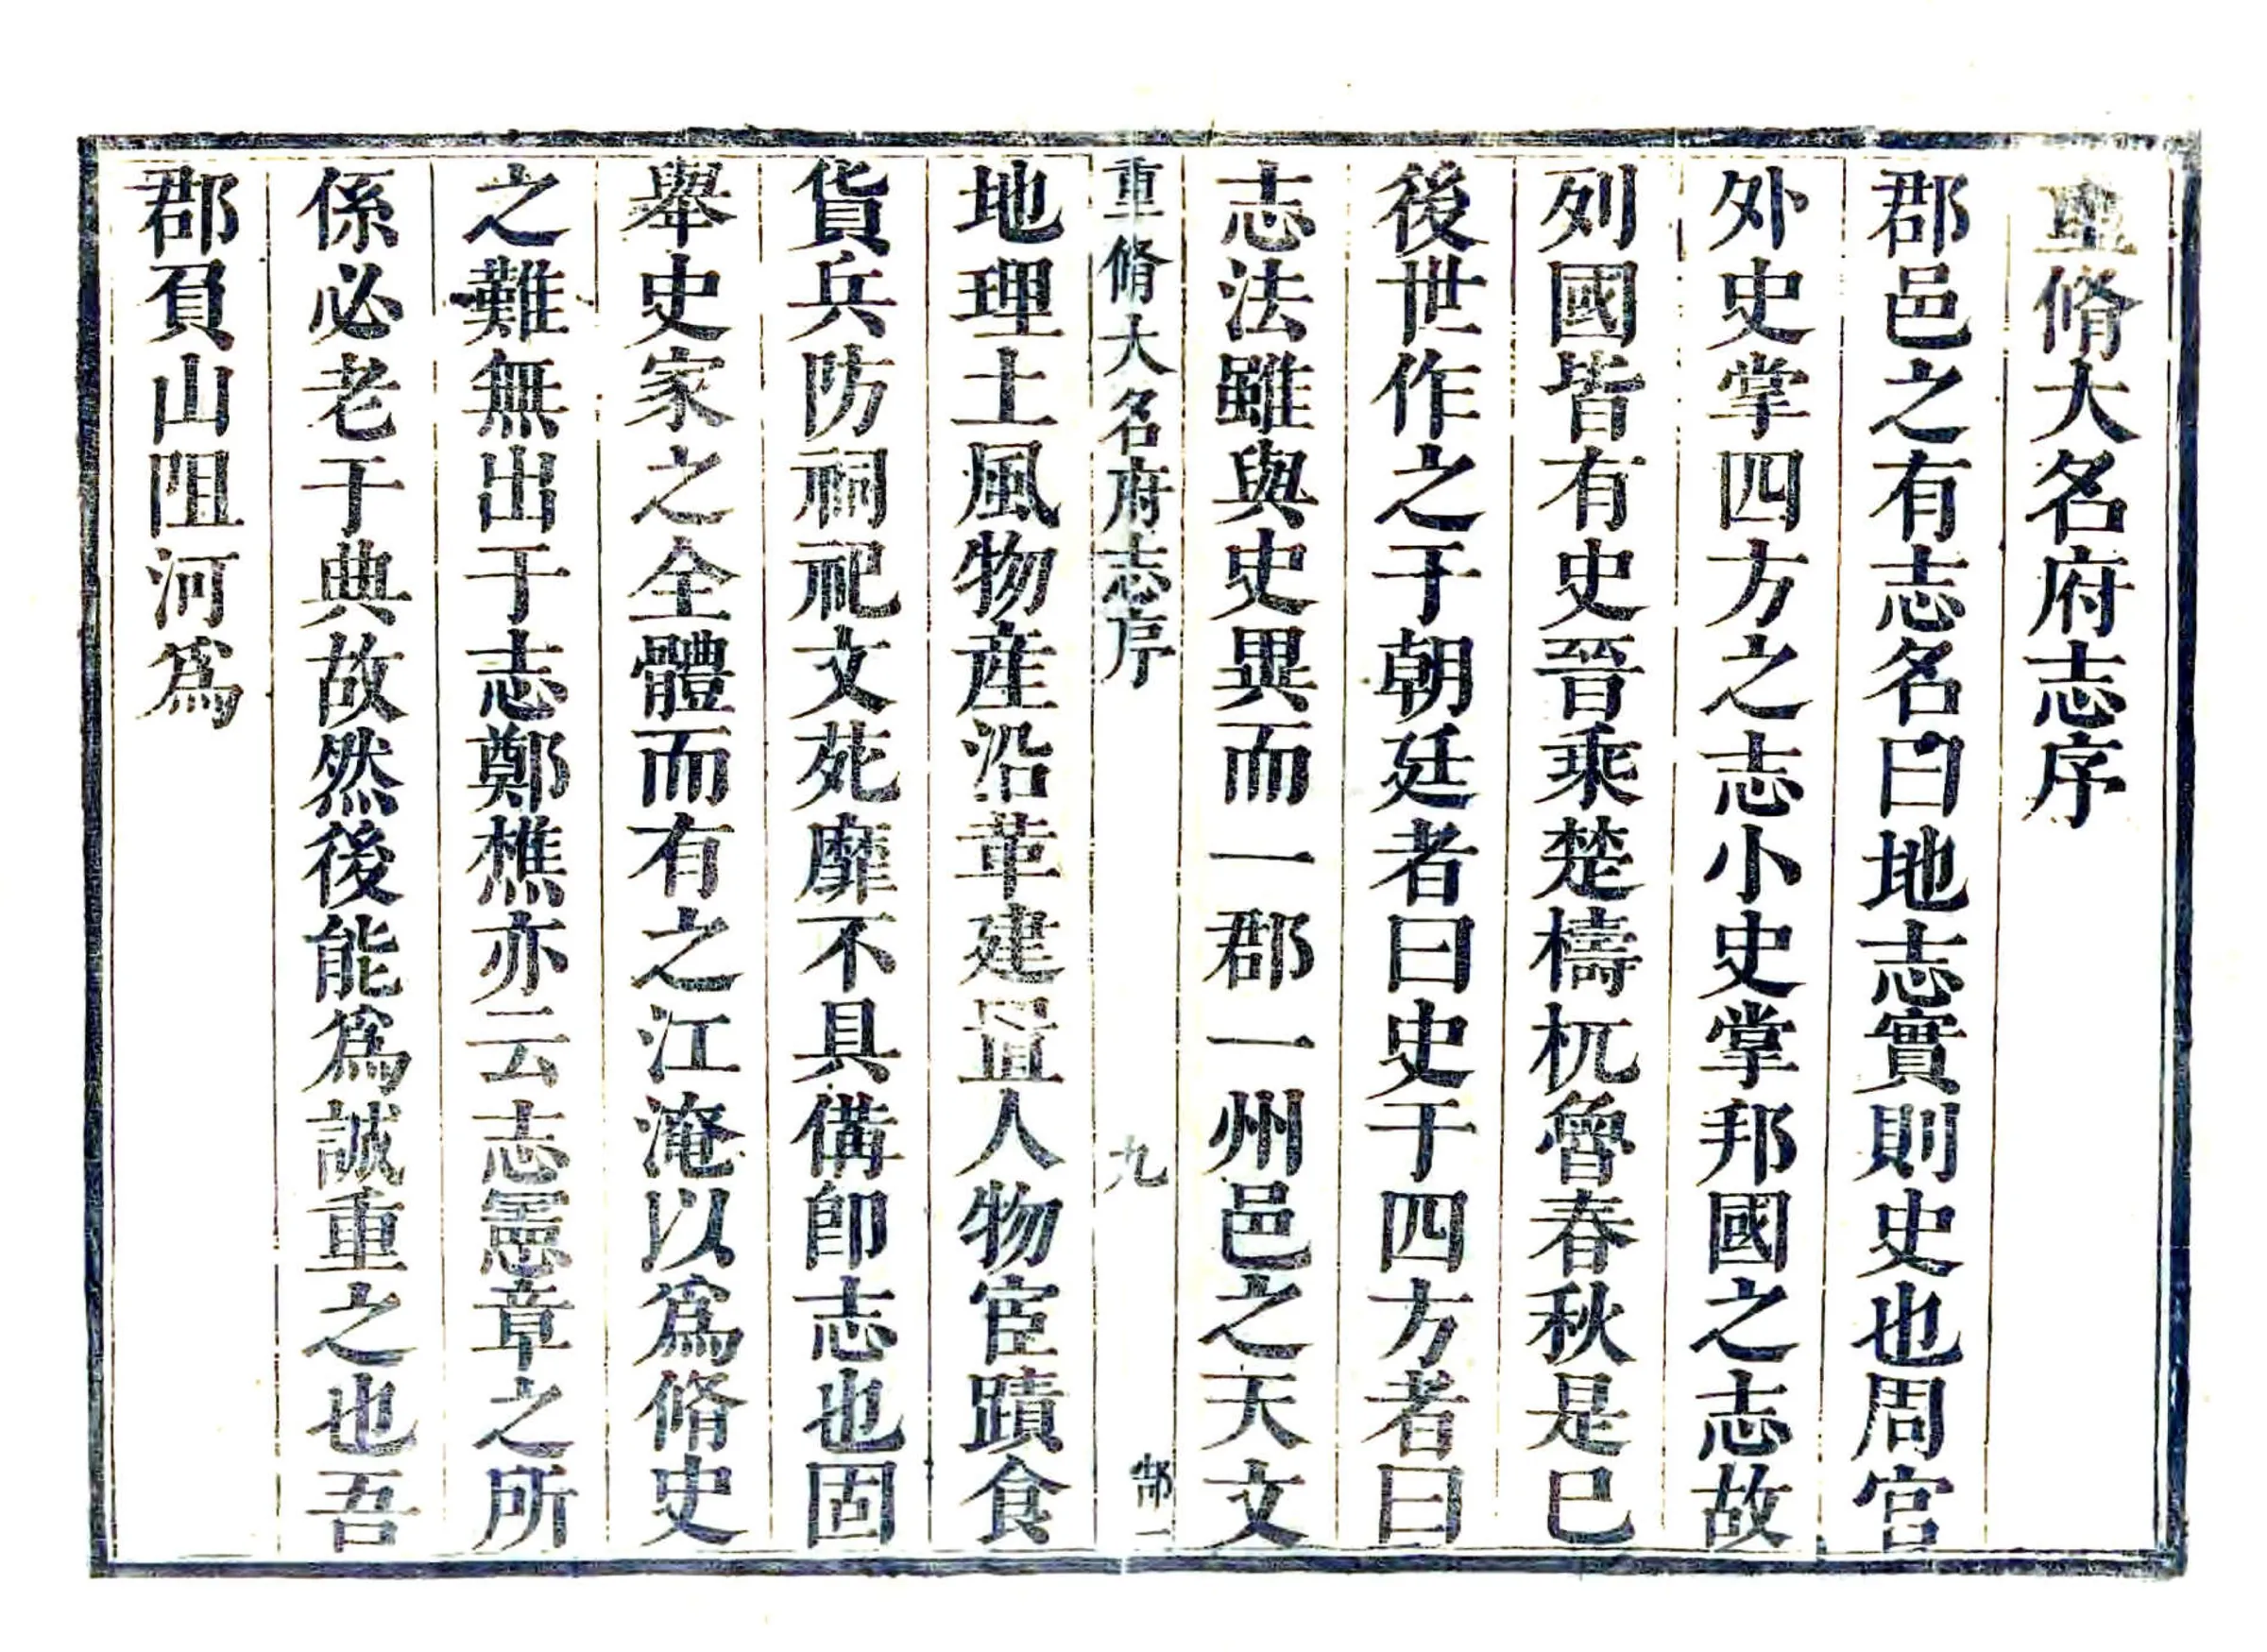 重脩大名府志序
郡邑之有志名曰地志實則史也周官
外史掌四方之志小史掌邦國之志故
列國皆有史晉乘楚檮杌魯春秋是已
後世作之于朝廷者曰史于四方者曰
志法雖與史異而一郡一州邑之天文
重脩大名府志序
九
郜一
地理土風物産沿革建置人物宦蹟食
貨兵防祠祀文苑靡不具備卽志也固
舉史家之全體而有之江淹以爲脩史
之難無出于志鄭樵亦云志憲章之所
係必老于典故然後能爲誠重之也吾
郡負山阻河爲